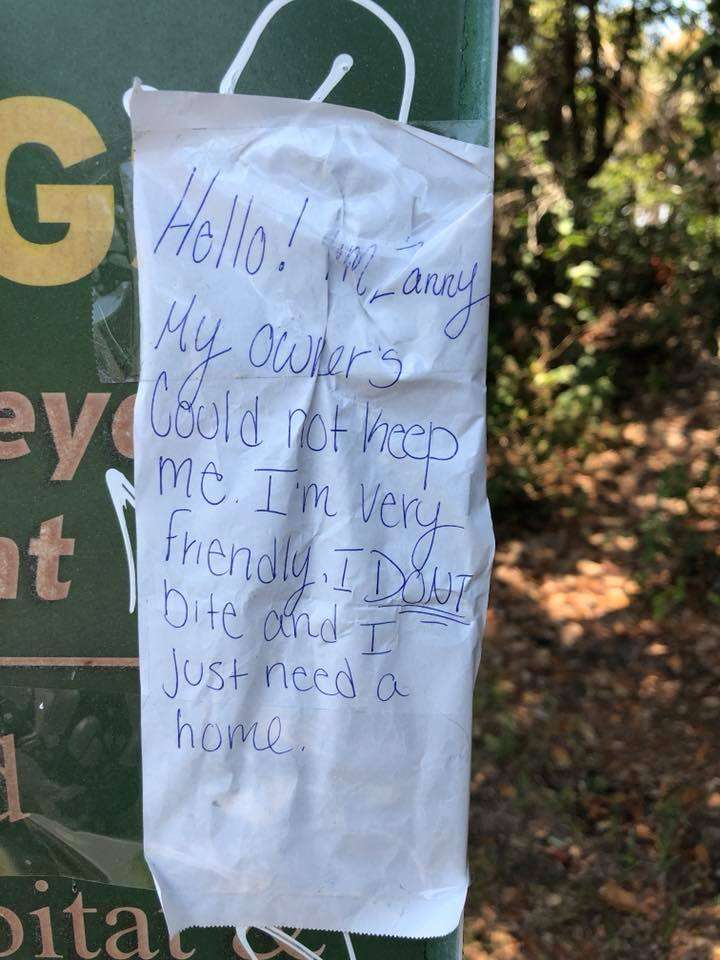 Hello! I'm Zanny
My owner's
Could not keep
me. I'm very
friendly. I DONT
bite and I
just need a
home.
G
eye
nt
d
bitat &